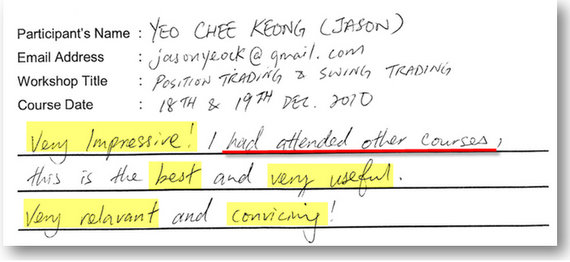 Participant's Name : YEO CHEE KEONG (JASON)
Email Address : jasonyeock@gmail.com
Workshop Title : POSITION TRADING & SWING TRADING
Course Date : 18TH & 19TH DEC. 2010
Very Impressive! I had attended other courses,
this is the best and very useful.
Very relavant and convicing!